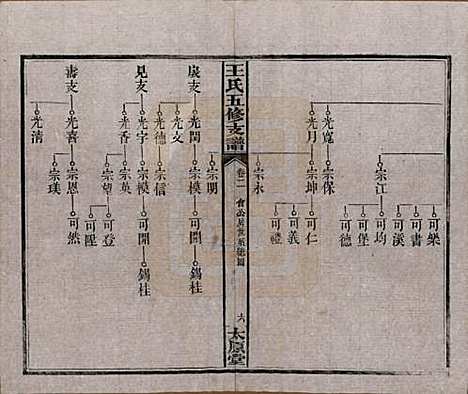 光寬
宗保
宗江
可樂
可書
可溪
可均
可堡
可德
光月
宗坤
可仁
可義
可禮
宗永
王氏五修支譜
卷二
六
太原堂
宗明
支
光閏
宗模
可開
錫桂
光文
見支
光宇
宗模
可開
錫桂
光德
宗信
光香
宗英
壽支
光喜
宗恩
可然
宗望
可登
可陞
光清
宗璞